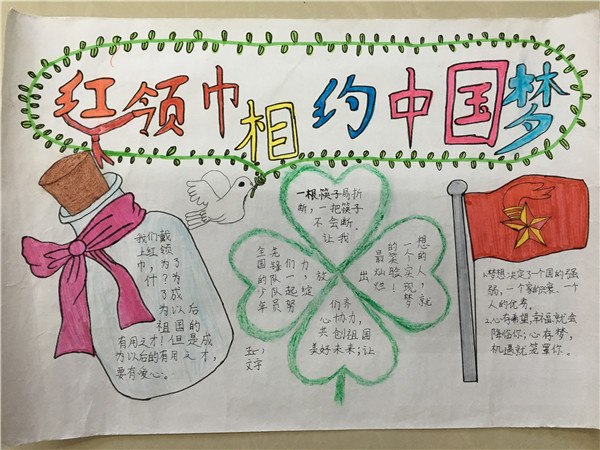 红领巾相约中国梦
我们戴
上红领
巾，为了
什?为
了成
为以后
祖国的
有用之才！但是成
为以后的有用之才，
要有爱心。
一根筷子易折
断，一把筷子
不会断。
让我
们齐
心协力，
共创祖国
美好未来；让
全国的少年
先锋队队员
们一起努
力，绽
放
出
最灿烂
的笑脸！
一个实现梦
想的人，就
五(一)
文字
1.梦想决定了一个国的强
弱，一个家的兴衰，一个
人的优秀。
2.心有希望，幸福就会
降临你；心存梦，
机遇就笼罩你。